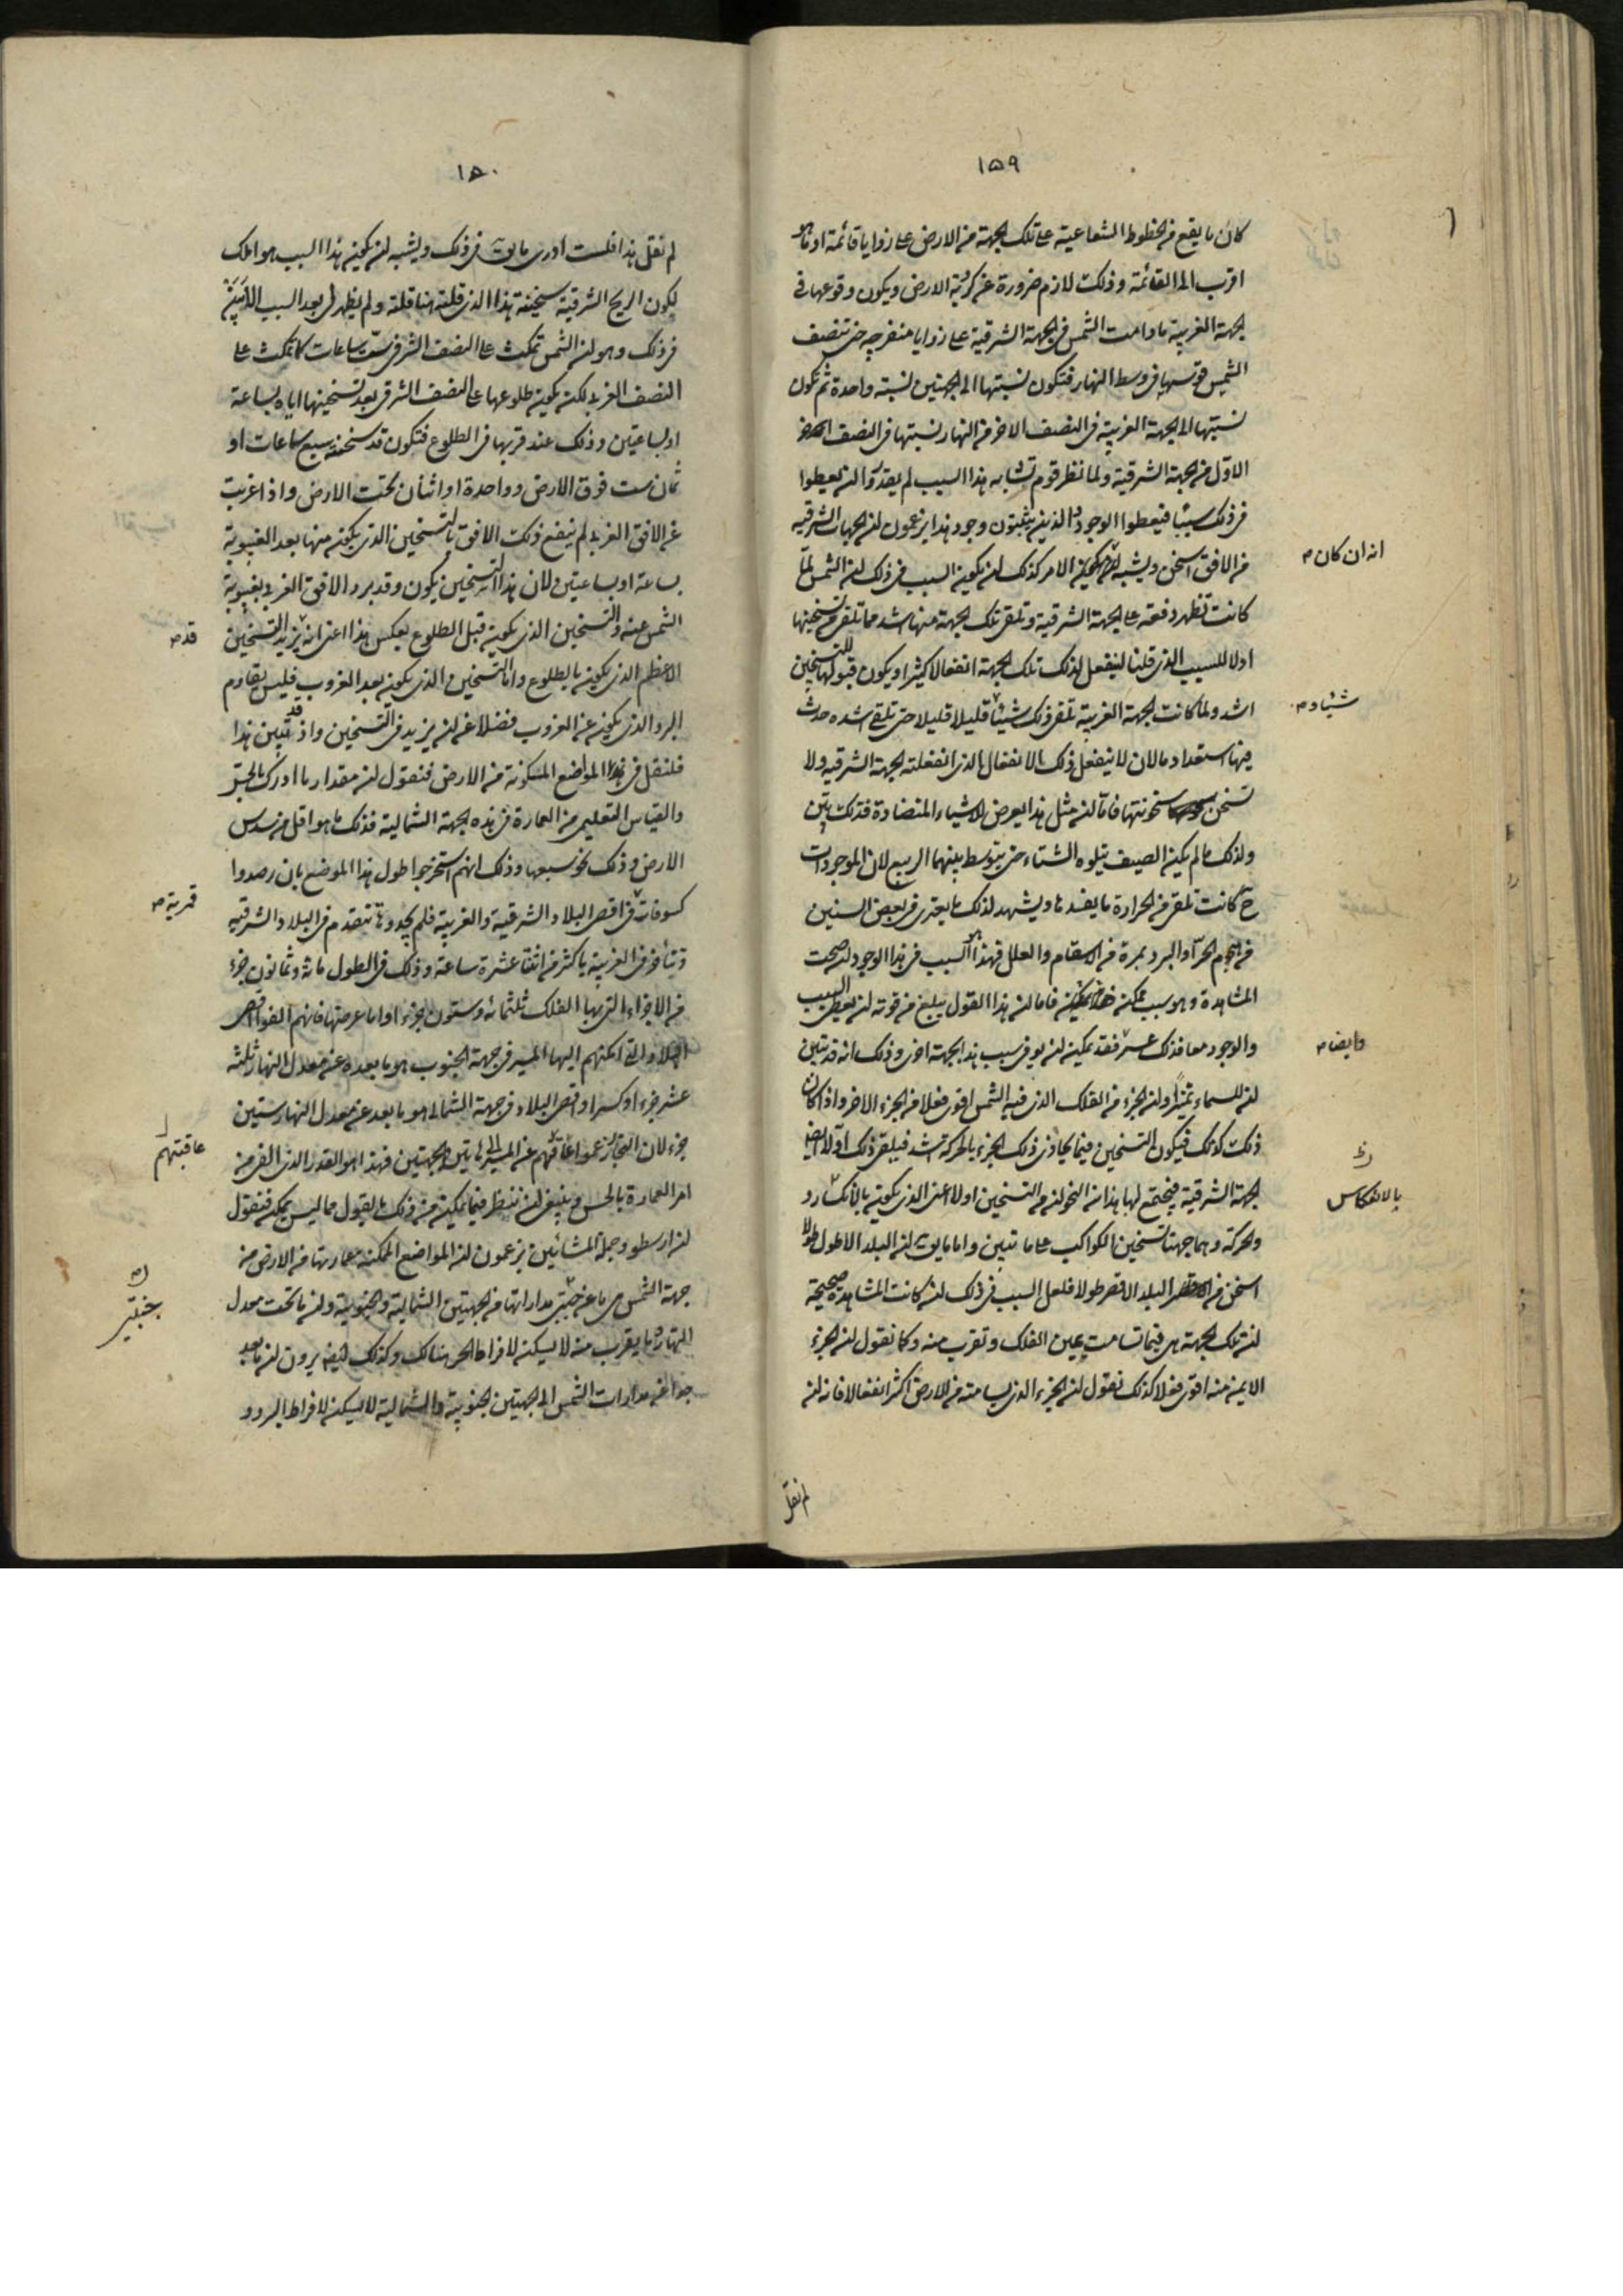 ١٥٩
كان ما يقع من الخطوط الشعاعية على تلك الجهة من الارض على زوايا قائمة او ما هو
اقرب الى القائمة وذلك لازم ضرورة عن كرية الارض ويكون وقوعها فى
الجهة الغربية ما دامت الشمس فى الجهة الشرقية على زوايا منفرجة حتى تنصف
الشمس قوسها فى وسط النهار فتكون نسبتها الى الجهتين نسبة واحدة ثم تكون
نسبتها الى الجهة الغربية فى النصف الاخر من النهار نسبتها فى النصف
الاول من الجهة الشرقية ولما نظر قوم تشابه هذا السبب لم يقدروا ان يعطوا
فى ذلك سببا فيعطوا الوجود والذين يثبتون وجود هذا يزعمون ان الجهات الشرقية
من الافق اسخن ويشبه ان يكون الامر كذلك ان يكون السبب فى ذلك ان الشمس لما
انه ان كان صح
كانت تظهر دفعة على الجهة الشرقية وتلقى تلك الجهة منها اشد مما تلقى من تسخينها
اولا للسبب الذى قلنا لينفعل لذلك تلك الجهة انفعالا كثيرا ويكون قبولها للتسخين
اشد ولما كانت الجهة الغربية تلقى ذلك شيئا قليلا قليلا حتى تلقى اشده حدث
شيئا صح
فيها استعداد ما لان لا ينفعل ذلك الانفعال الذى انفعلته الجهة الشرقية ولا
تسخن سخونتها فان مثل هذا يعرض للاشياء المتضادة فتدلك بين
ولذلك ما لم يكن الصيف يتلوه الشتاء حتى يتوسط بينهما الربيع لان الموجودات
ح كانت تلقى من الحرارة ما يفسدها ويشهد لذلك ما يعترى فى بعض السنين
من هجم الحر او البرد بمرة من الاسقام والعلل فهذا هو السبب فى هذا الوجود ان صحت
المشاهدة وهو سبب ممكن فاما ان هذا القول يبلغ من قوته ان يعطى السبب
والوجود معا فذلك عسر فقد يمكن ان يوفى سبب هذا بجهة اخرى وذلك انه قد تبين
وايضا صح
ان للسماء يمينا وان الجزء من الفلك الذى فيه الشمس اقوى فعلا من الجزء الاخر واذا كان
ذلك كذلك فيكون التسخين فيما يحاذى ذلك الجزء بالحركة اشد فيلقى ذلك اولا ايضا
الجهة الشرقية فيجتمع لها هذان النحوان من التسخين اولا اعنى الذى يكون بالانكسار و
بالانعكاس
والحركة وهما جهتا تسخين الكواكب على ما تبين واما ما يقال ان البلد الاطول طولا
اسخن من البلد الاقصر طولا فلعل السبب فى ذلك ان كانت المشاهدة صحيحة
ان تلك الجهة هى فيما تسامت يمين الفلك وتقرب منه وكما نقول ان الجزء
الايمن منه اقوى فعلا كذلك نقول ان الجزء الذى يسامته من الارض اكثر انفعالا فانه ان
لم نقل
١٥٠
لم نقل هذا فلست ادرى ما يقال فى ذلك ويشبه ان يكون هذا السبب هو املك
لكون الريح الشرقية سخينة هذا الذى قلته هنا قلته ولم يظهر لى بعد السبب
فى ذلك وهو ان الشمس تمكث على النصف الشرقى ست ساعات كما تمكث على
النصف الغربى لكن يكون طلوعها على النصف الشرقى بعد تسخينها اياه بساعة
او بساعتين وذلك عند قربها فى الطلوع فتكون قد سخنته سبع ساعات او
ثمان ست فوق الارض وواحدة او اثنان تحت الارض واذا غربت
عن الافق الغربى لم ينتفع ذلك الافق بالتسخين الذى يكون منها بعد الغيبوبة
بساعة او بساعتين لان هذا التسخين يكون وقد برد الافق الغربى بغيبوبة
الشمس عنه والتسخين الذى يكون قبل الطلوع بعكس هذا اعنى انه يزيد التسخين
قد صح
الاعظم الذى يكون بالطلوع واما التسخين الذى يكون بعد الغروب فليس يقاوم
البرد الذى يكون عن الغروب فضلا عن ان يزيد فى التسخين واذ قد تبين هذا
فلنقل فى المواضع المسكونة من الارض فنقول ان مقدار ما ادرك بالحس
والقياس التعليمى من العمارة فى هذه الجهة الشمالية فذلك ما هو اقل من سدس
الارض وذلك نحو سبعها وذلك انهم استخرجوا طول هذا الموضع بان رصدوا
كسوفات فى اقصى البلاد الشرقية والغربية فلم يجدوها تتقدم فى البلاد الشرقية
قمرية صح
وتتأخر فى الغربية باكثر من اثنتا عشرة ساعة وذلك فى الطول مائة وثمانون جزء
من الاجزاء التى بها الفلك ثلثمائة وستون جزء واما عرضها فانهم الفوا اقصى
البلاد التى امكنهم اليها المسير فى جهة الجنوب هو ما بعده عن معدل النهار ثلثة
عشر جزء او كسر واقصى البلاد فى جهة الشمال هو ما بعد عن معدل النهار ستين
جزء لان البحار زعموا عاقهم عن المسير الى هاتين الجهتين فهذا هو القدر الذى الفى من
عاقبتهم
امر العمارة بالحس وينبغى ان ننظر فيما يمكن من ذلك بالقول مما ليس يمكن فنقول
ان ارسطو وجملة المشائين يزعمون ان المواضع الممكنة عمارتها من الارض من
جهة الشمس هى ما عن جنبتى مداراتها من الجهتين الشمالية والجنوبية وان ما تحت معدل
جنبتين
النهار وما يقرب منه لا يسكن لافراط الحر هنالك وكذلك ايضا يرون ان ما بعد
جدا عن مدارات الشمس الى الجهتين الجنوبية والشمالية لا يسكن لافراط البرد و